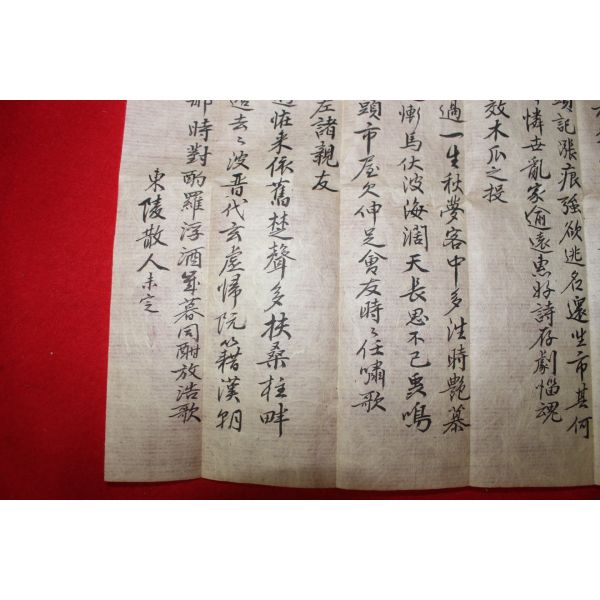 頊記漲痕強欲逃名還坐市其何
憐世亂家逾遠惠好詩存劇惱魂
效木瓜之投
過一生秋夢客中多淮時艷慕
慚馬伏波海濶天長思不已更鳴
頭市屋欠伸足會友時〻任嘯歌
左諸親友
怪来依舊楚聲多扶桑枉畔
去〻波晋代玄虛歸阮籍漢朝
時對酌羅浮酒歲暮同酣放浩歌
東陵散人未定